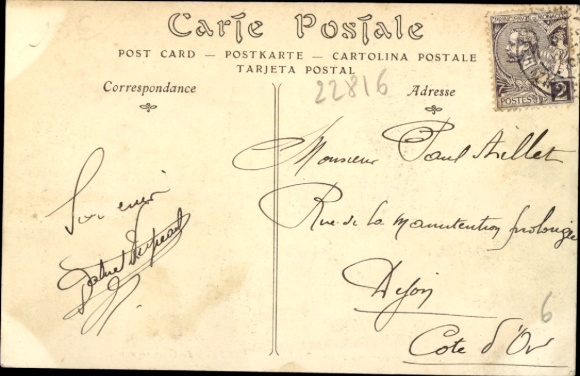 Carte Postale
POST CARD — POSTKARTE — CARTOLINA POSTALE
TARJETA POSTAL
Correspondance
22816
Adresse
POSTES
2
Souvenir
Monsieur Paul Aillet
Rue de la Manutention prolongée
Dijon
6
Cote d'Or